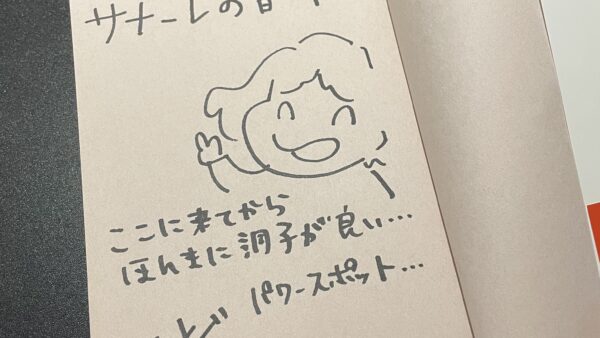 サナーレの
ここに来てから
ほんまに調子が良い…
パワースポット…